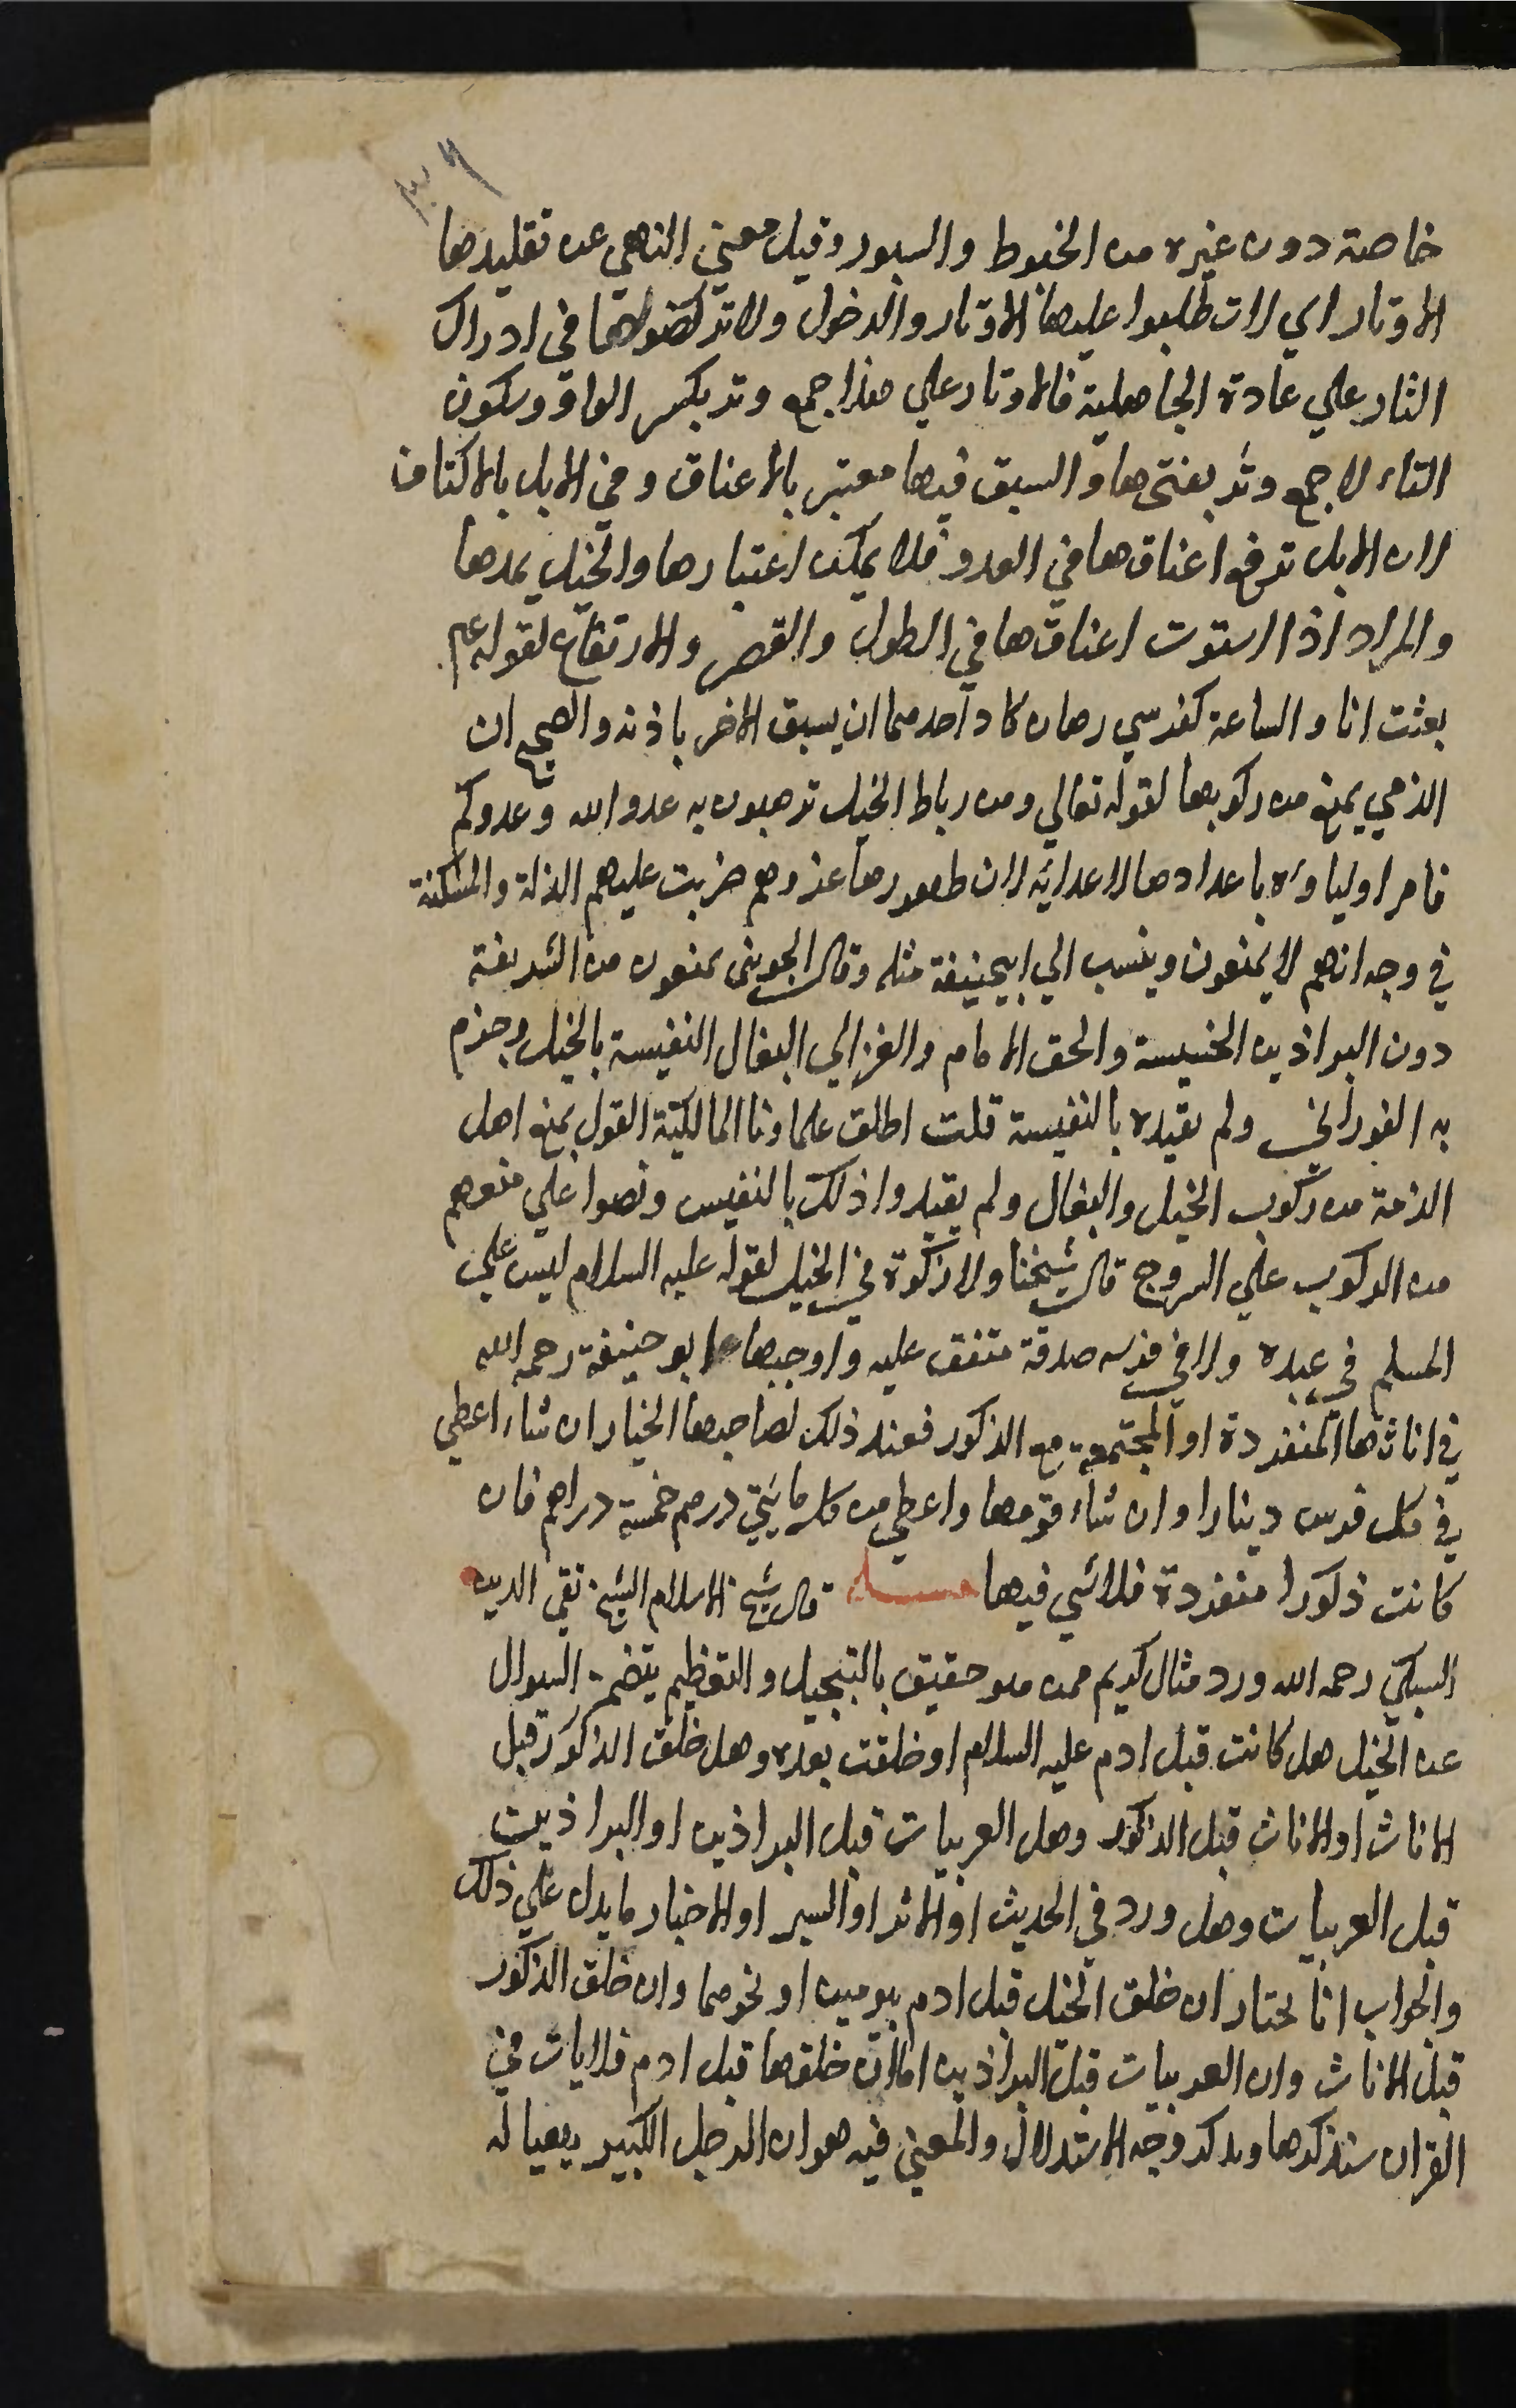 خاصة دون غيره من الخيوط والسيور وقيل معني النهي عن تقليدها
الاوتار اي لا تطلبوا عليها الاوتار والدخول ولا تركضوها في ادراك
الثار علي عادة الجاهلية فالاوتار علي هذا جمع وتر بكسر الواو وسكون
التاء لا جمع وتر بفتحها والسبق فيها معتبر بالاعناق وفي الابل بالاكتاف
لان الابل ترفع اعناقها في العدو فلا يمكن اعتبارها والخيل يمدها
والمراد اذا استوت اعناقها في الطول والقصر والارتفاع لقوله عم
بعثت انا والساعة كفرسي رهان كاد احدهما ان يسبق الاخر باذنه والصحيح ان
الذمي يمنع من ركوبها لقوله تعالي ومن رباط الخيل ترهبون به عدو الله وعدوكم
فامر اولياؤه باعدادها لاعدائه لان ظهورها عز وهم ضربت عليهم الذلة والمسكنة
في وجه انهم لا يمنعون وينسب الي ابيحنيفة مثله وقال الجويني يمنعون من الشريفة
دون البراذين الخسيسة والحق الامام والغزالي البغال النفيسة بالخيل وجزم
به الفوراني ولم يقيده بالنفيسة قلت اطلق علماونا المالكية القول بمنع اهل
الذمة من ركوب الخيل والبغال ولم يقيدوا ذلك بالنفيس ونصوا علي منعهم
من الركوب علي السروج قال شيخنا ولا زكوة في الخيل لقوله عليه السلام ليس علي
المسلم في عبده ولا في فرسه صدقة متفق عليه واوجبها ابو حنيفة رحمه الله
في اناثها المنفردة او المجتمعة مع الذكور فعند ذلك لصاحبها الخيار ان شاء اعطي
في كل فرس دينارا وان شاء قومها واعطي من كل مايتي درهم خمسة دراهم فان
كانت ذكورا منفردة فلا شي فيها مسله قال شيخ الاسلام الشيخ تقي الدين
السبكي رحمه الله ورد مثال كريم ممن هو حقيق بالتبجيل والتعظيم يتضمن السوال
عن الخيل هل كانت قبل ادم عليه السلام او خلقت بعده وهل خلق الذكور قبل
الاناث او الاناث قبل الذكور وهل العربيات قبل البراذين او البراذين
قبل العربيات وهل ورد في الحديث او الاثر او السير او الاخبار ما يدل علي ذلك
والجواب انا نختار ان خلق الخيل قبل ادم بيومين او نحوهما وان خلق الذكور
قبل الاناث وان العربيات قبل البراذين اما ان خلقها قبل ادم فلايات في
القران سنذكرها ونذكر وجه الاستدلال والمعني فيه هو ان الرجل الكبير يهيا له